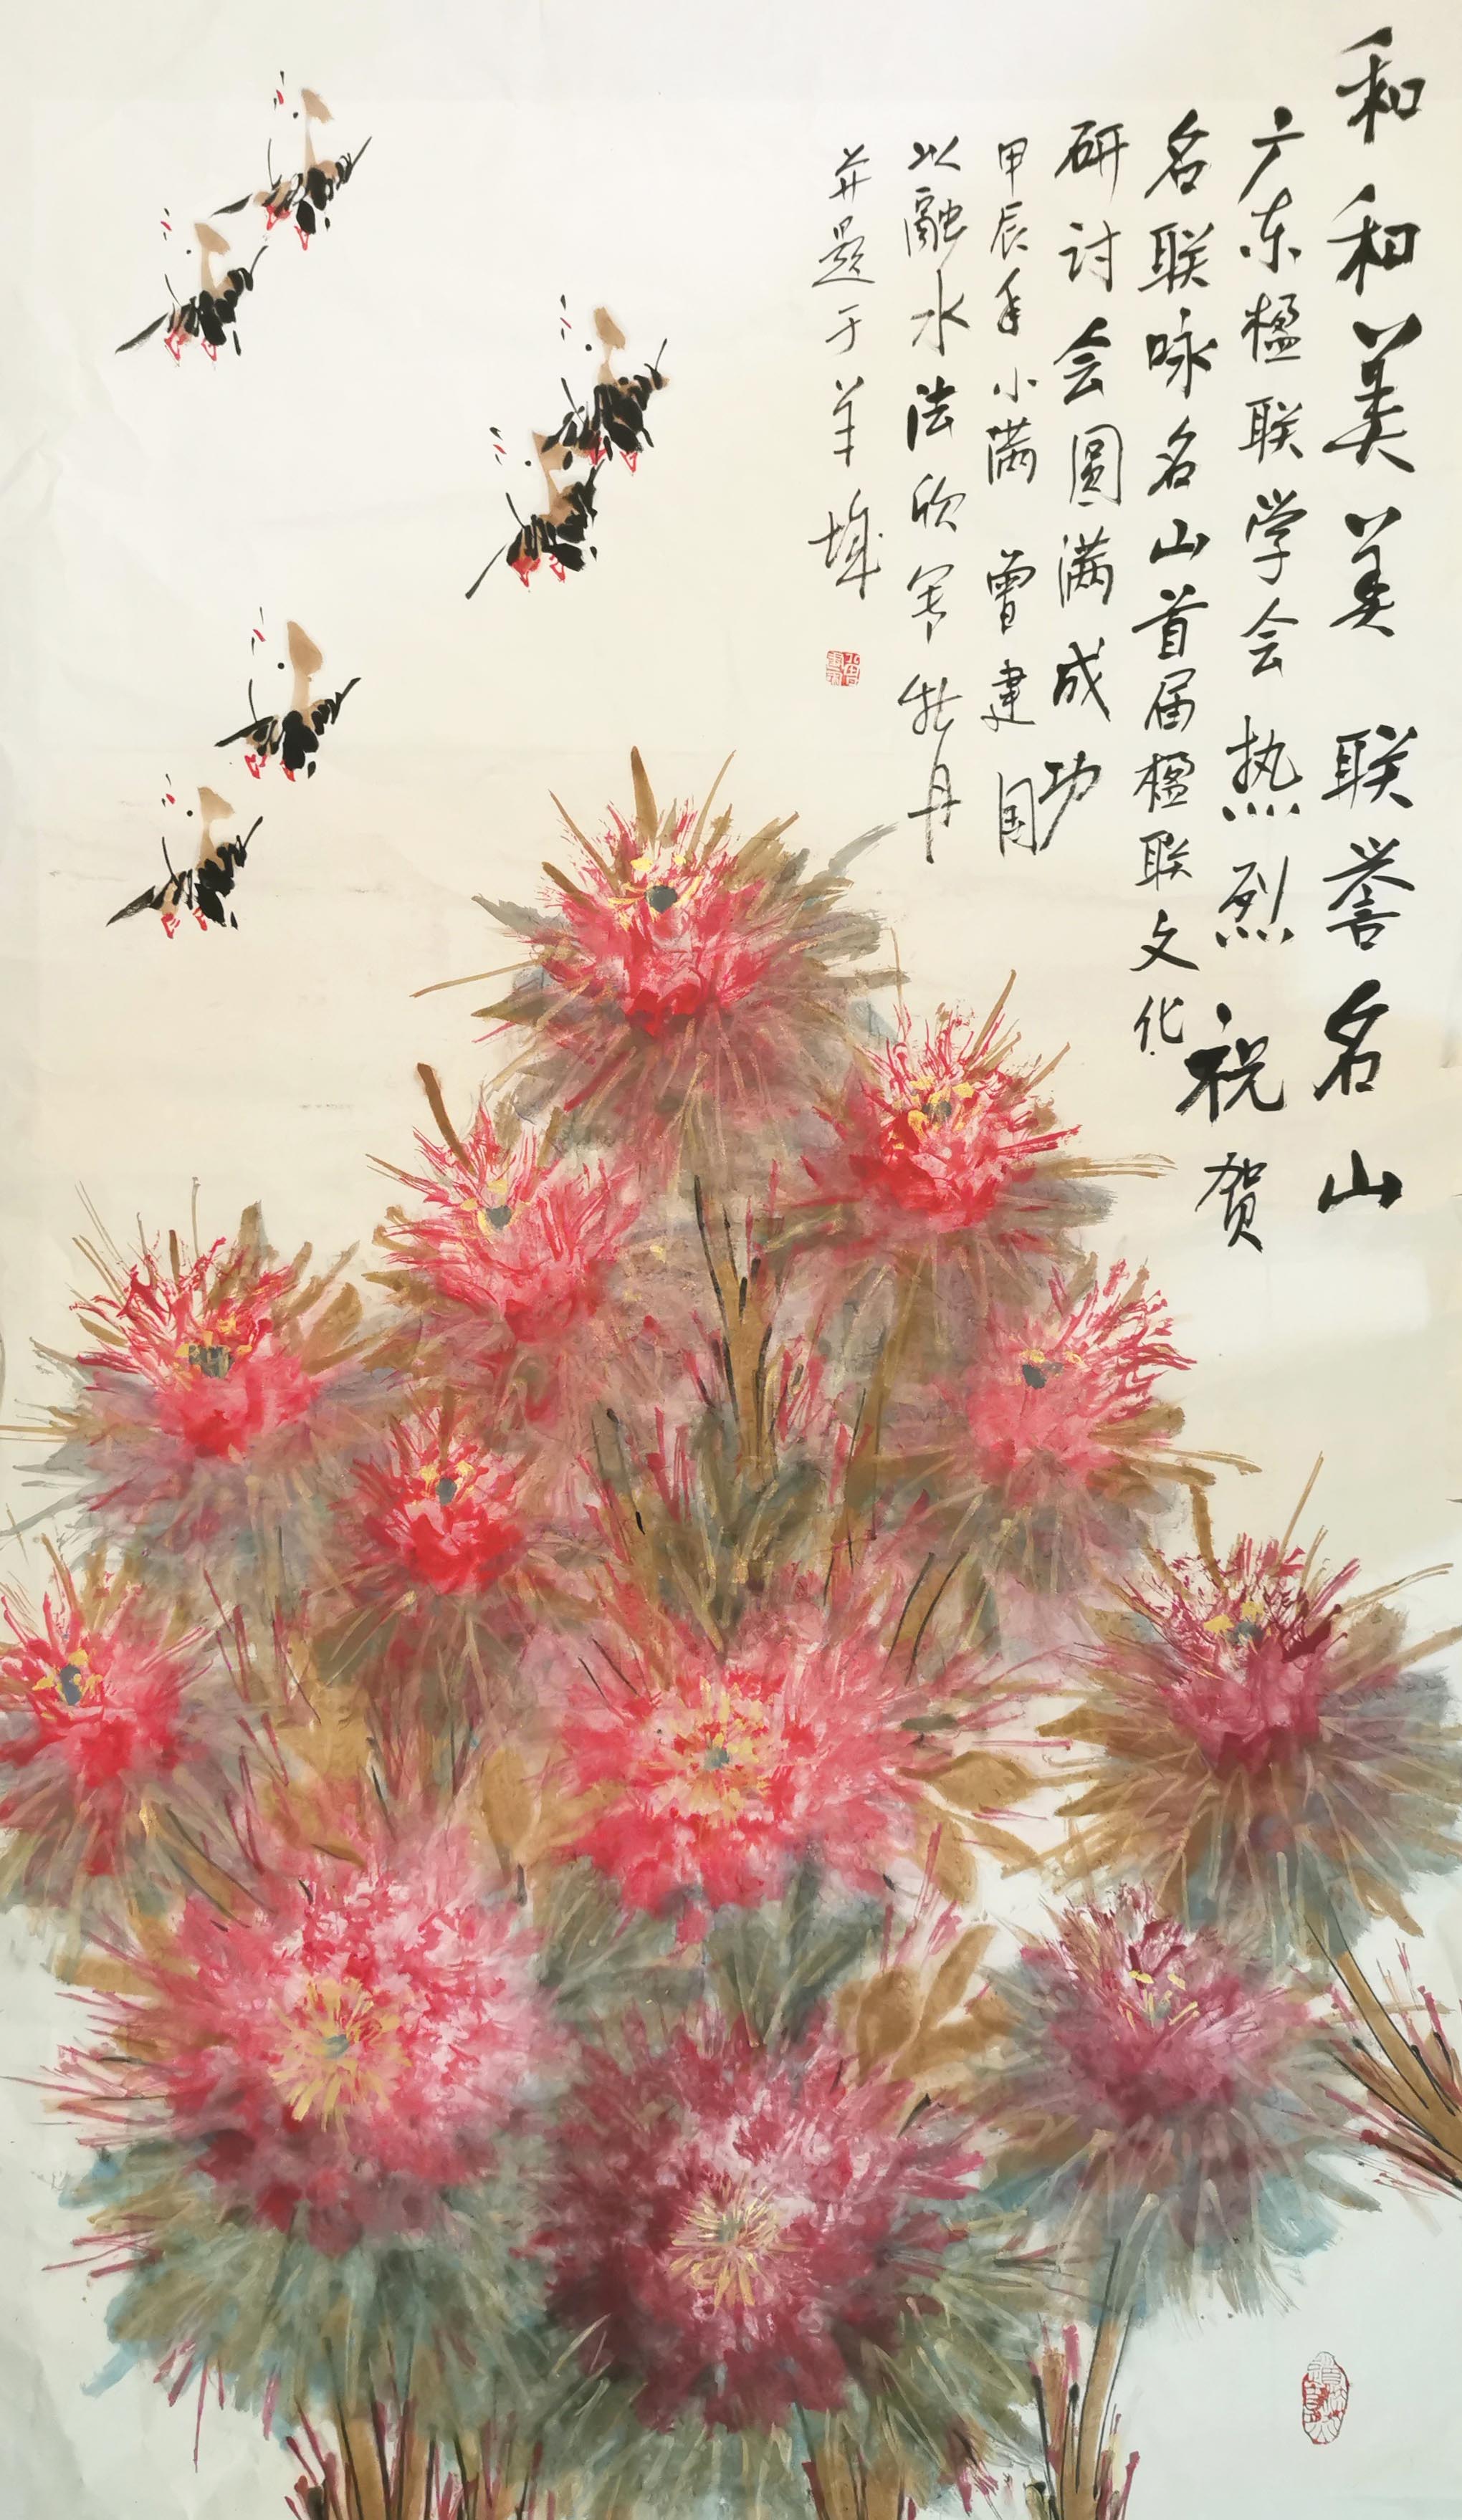 和和美美联誉名山
广东楹联学会热烈祝贺
名联咏名山首届楹联文化
研讨会圆满成功
甲辰年小满曾建国
以融水法欣写牡丹
并题于羊城